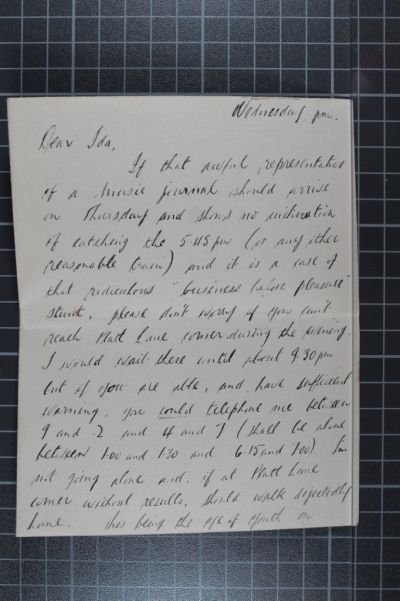 Wednesday, pm.
Dear Ida,
If that awful representative
of a music journal should arrive
on Thursday and shows no inclination
of catching the 5-45 pm (or any other
reasonable train) and it is a case of
that ridiculous "business before pleasure"
stunt, please don't worry if you can't
reach Hatt Lane corner during the evening.
I would wait there until about 9.30 pm
but if you are able, and have sufficient
warning, you could telephone me between
9 and 2 and 4 and 7 (shall be alone
between 1.00 and 1.30 and 6.15 and 7.00). I'm
not going alone and, if at Hatt Lane
corner without results, should walk dejectedly
home. This being the age of youth on